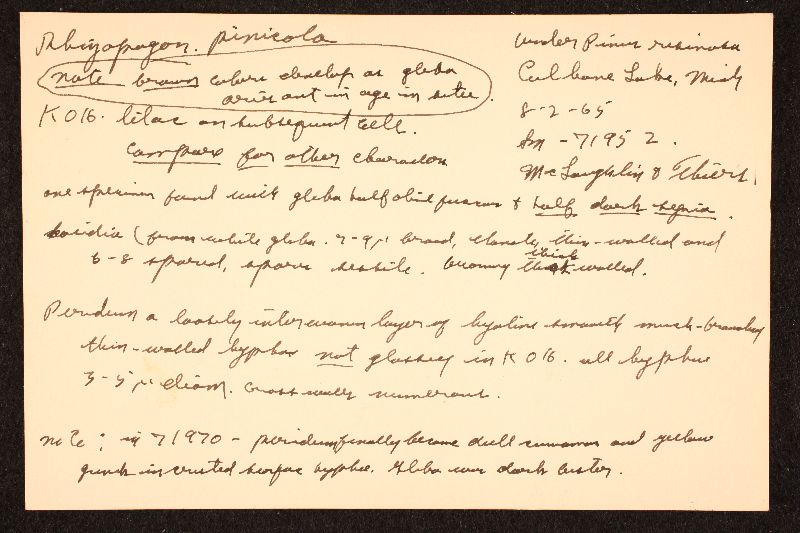 Rhizopogon. pinicola
note brown colors develop as gleba
dries out in age in situ.
KOH. lilac on subsequent cell.
compare for other characters
under Pinus resinosa
Lake, Mich
8-2-65
Sm - 71952.
McLaughlin & Thiers.
one specimen found with gleba half olive fuscous & half dark sepia.
basidia (from white gleba. 7-9µ broad, clavate, thin-walled and
6-8 spored, spores sessile. becoming thick walled.
Peridium a loosely interwoven layer of hyaline smooth much-branched
thin-walled hyphae not glassy in KOH. all hyphae
3-5µ diam. cross walls numerous.
note: in 71970 - peridium finally became dull cinnamon and yellow
in crusted surface hyphae. Gleba was dark